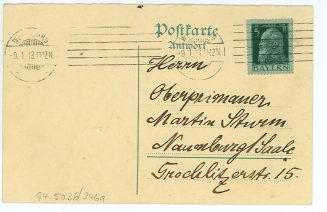 Postkarte
Antwort
5
BAYERN
Herrn
Oberprimaner
Martin Sturm
Naumburg/Saale
Grochlitzerstr. 15.